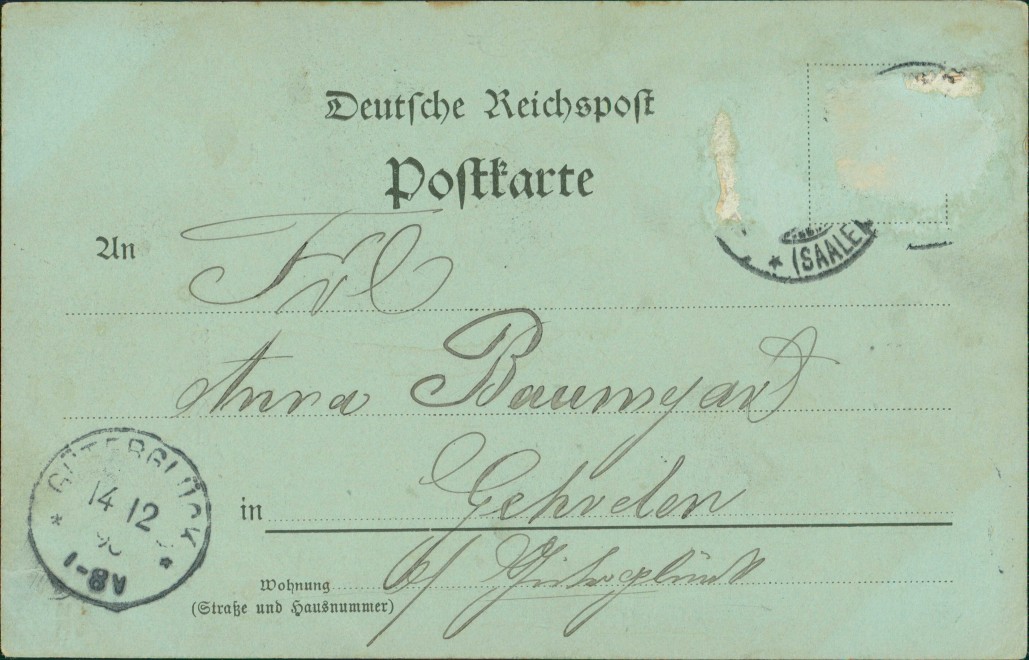 Deutsche Reichspost
Postkarte
(SAALE)
An Frl
Anna Baumgart
in Gehrden
Wohnung b/ Güterglück
(Straße und Hausnummer)
GÜTERGLÜCK
14 12
A8-1